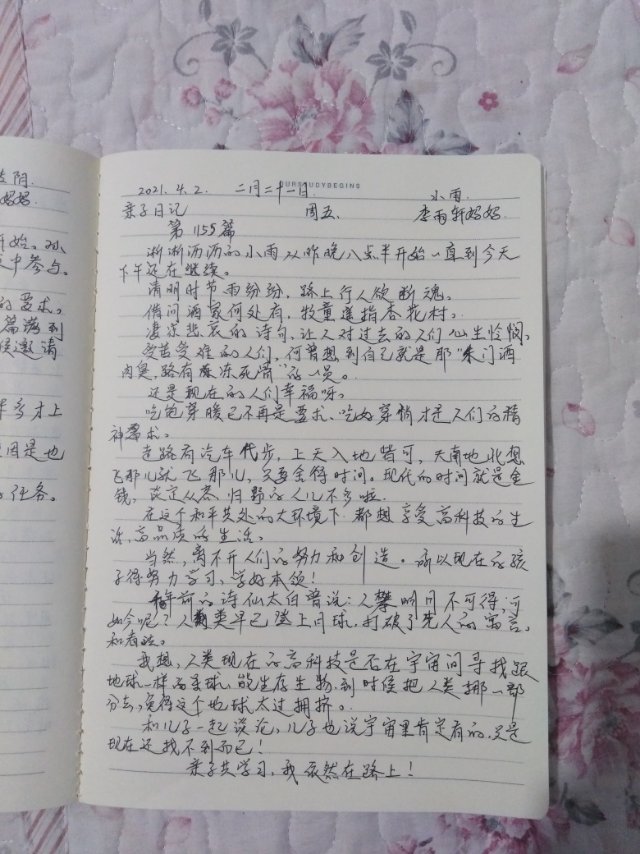 2021.4.2. 二月二十一日. 小雨.
亲子日记 周五、 李雨轩妈妈.
第1155篇
淅淅沥沥的小雨从昨晚八点半开始一直到今天
下午还在继续。
清明时节雨纷纷，路上行人欲断魂。
借问酒家何处有，牧童遥指杏花村。
凄凉悲哀的诗句，让人对过去的人们心生怜悯，
受苦受难的人们，何曾想到自己就是那“朱门酒
肉臭，路有冻死骨”的一员。
还是现在的人们幸福呀。
吃饱穿暖已不再是要求、吃好穿俏才是人们的精
神需求。
走路有汽车代步，上天入地皆可，天南地北想
飞那儿就飞那儿，只要舍得时间。现代的时间就是金
钱，淡定从容归野的人儿不多啦.
在这个和平共处的大环境下都想享受高科技的生
活，高品质的生活。
当然，离不开人们的努力和创造。所以现在的孩
子得努力学习、学好本领！
年前的诗仙太白曾说：人攀明月不可得，可
如今呢？人类早已登上月球，打破了先人的寓言。
我想，人类现在的高科技是否在宇宙间寻找跟
地球一样的星球，能生存生物，到时候把人类挪一部
分去，免得这个地球太过拥挤。
和儿子一起谈论，儿子也说宇宙里肯定有的，只是
现在还找不到而已！
亲子共学习，我依然在路上！
阴.
妈妈
开始。
中参与。
的要求。
篇落到
邀请
才上
因是也
的任务。